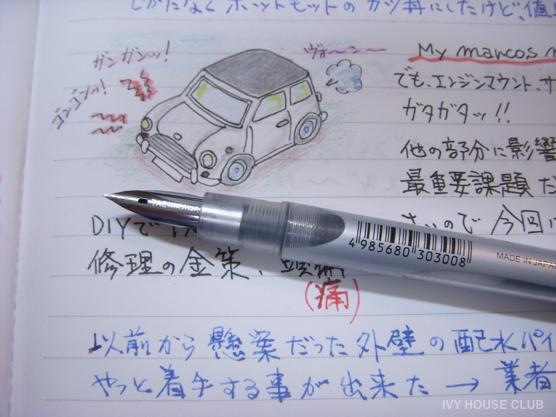 しかたなく ホットモットの カツ丼にしたけど、値
ガンガンッ!
ヴォーンー
ゴンゴンッ!
My marcos
でも、エンジンマウント、サ
ガタガタッ!!
他の部分に影響
最重要課題だ
TACHIKAWA
ので 今回
DIYで
修理の金策、頭
(痛)
4 985680 303008
MADE IN JAPA
以前から 懸案だった 外壁 の 配水パイ
やっと着手する事が出来た → 業者
IVY HOUSE CLUB